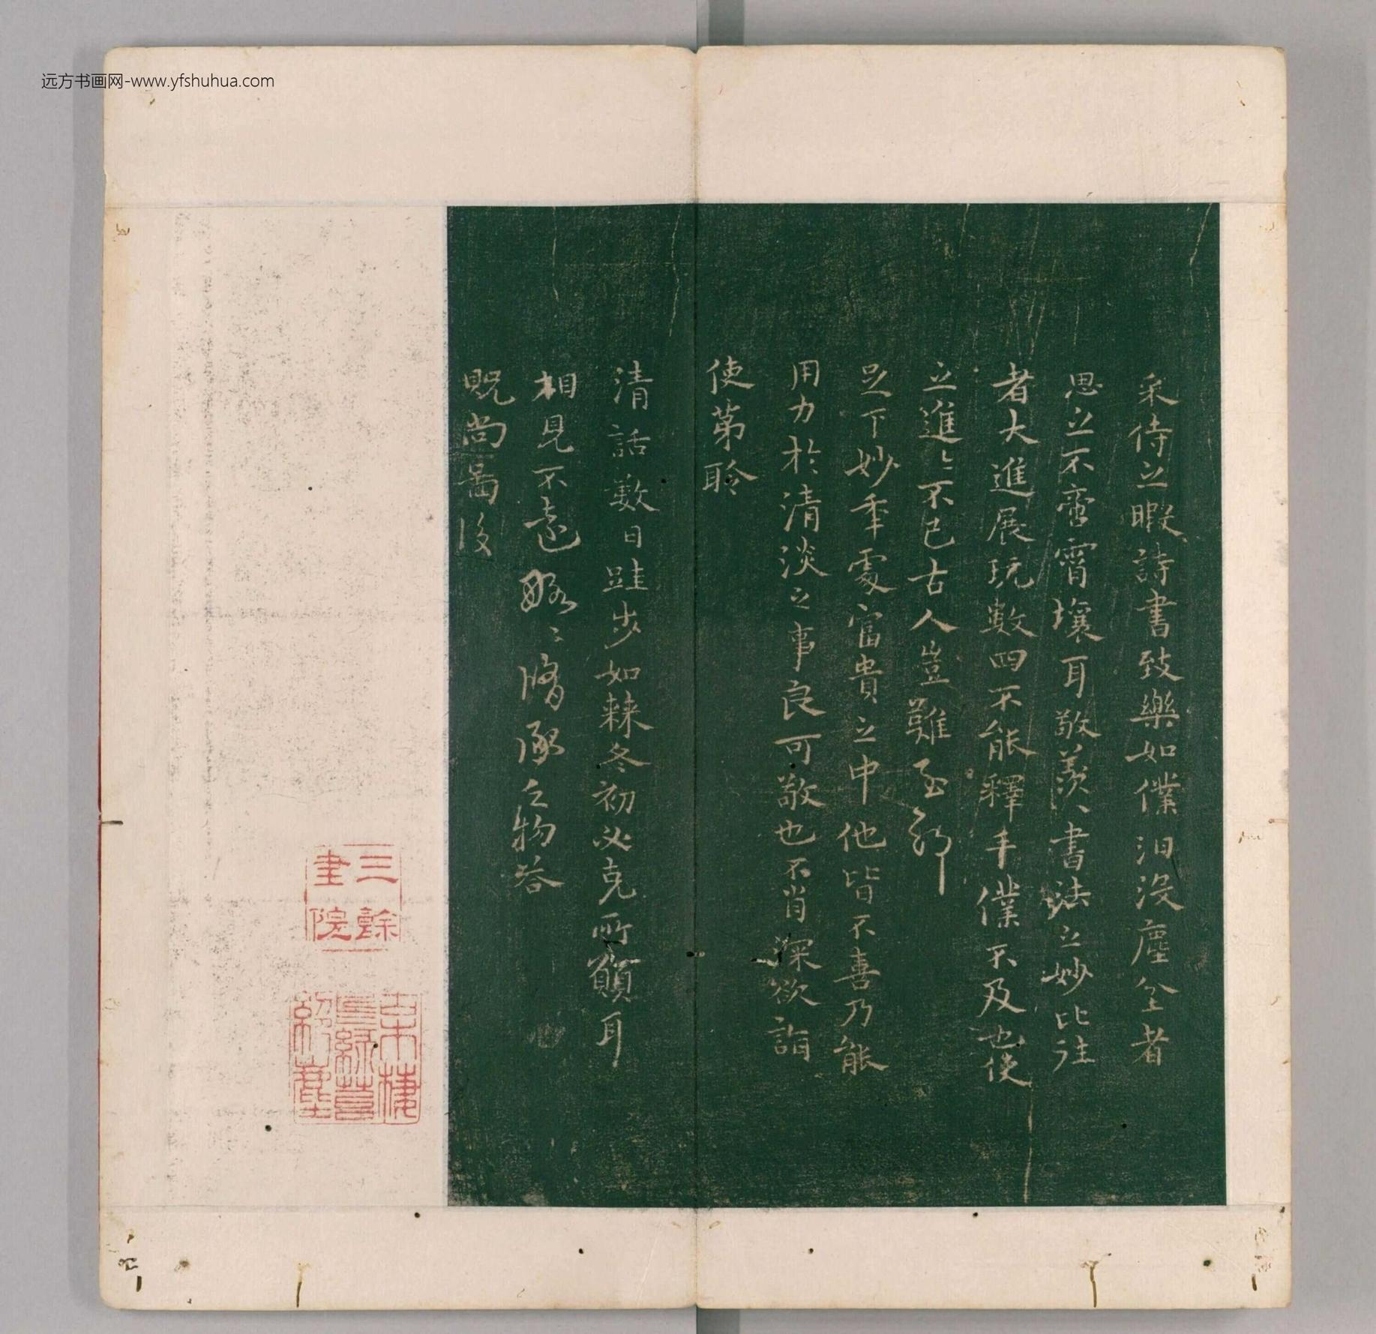 远方书画网-www.yfshuhua.com
采侍之暇詩書致樂如僕汨没塵坌者
思之不啻霄壤耳敬羨〻書法之妙比往
者大進展玩數四不能釋手僕不及也使
之進〻不已古人豈難至耶
足下妙年處富貴之中他皆不喜乃能
用力於清淡之事良可敬也不肖深欲詣
使苐聆
清話數日跬步如棘冬初必克所願耳
相見不遠
物荅
貺尚啚後
三餘
書院